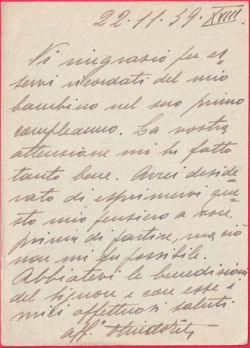 22.11.39. XVIII.
Vi ringrazio per es
servi ricordati del mio
bambino nel suo primo
compleanno. La vostra
attensione mi ha fatto
tanto bene. Avrei deside
rato di esprimervi que
sto mio pensiero a voce,
prima di partire, ma ciò
non mi fu possibile.
Abbiatevi le benedizioni
del Signore e con esse i
miei affettuosi saluti.
aff.